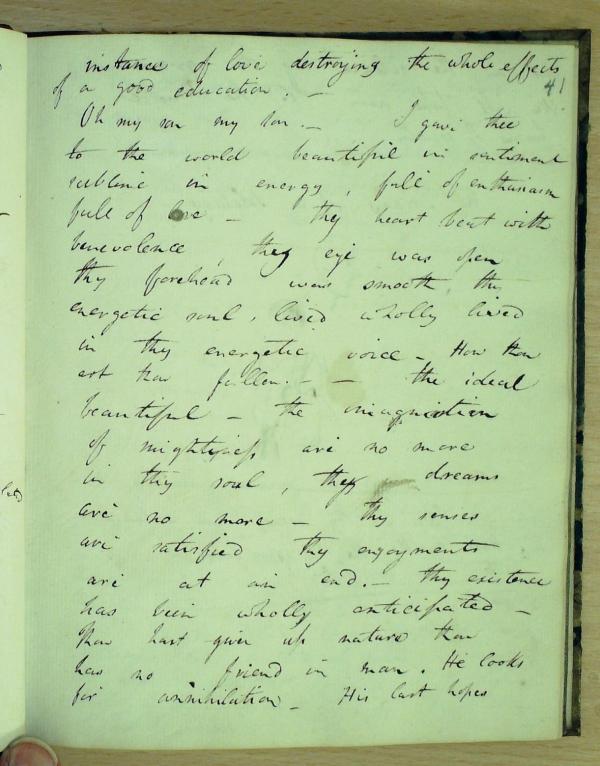 instance of love destroying the whole effects
41
of a good education. —
Oh my son my son. — I gave thee
to the world beautiful in sentiment
sublime in energy, full of enthusiasm
full of love — thy heart beat with
benevolence, thy eye was open
thy forehead was smooth thy
energetic soul, lived wholly lived
in thy energetic voice — How thou
art thou fallen. — — the ideal
beautiful — the imagination
of mightiness are no more
in thy soul, thy dreams
are no more — thy senses
are satisfied thy enjoyments
are at an end. — thy existence
has been wholly anticipated —
thou hast given up nature thou
has no friend in man. He looks
for annihilation — His last hopes